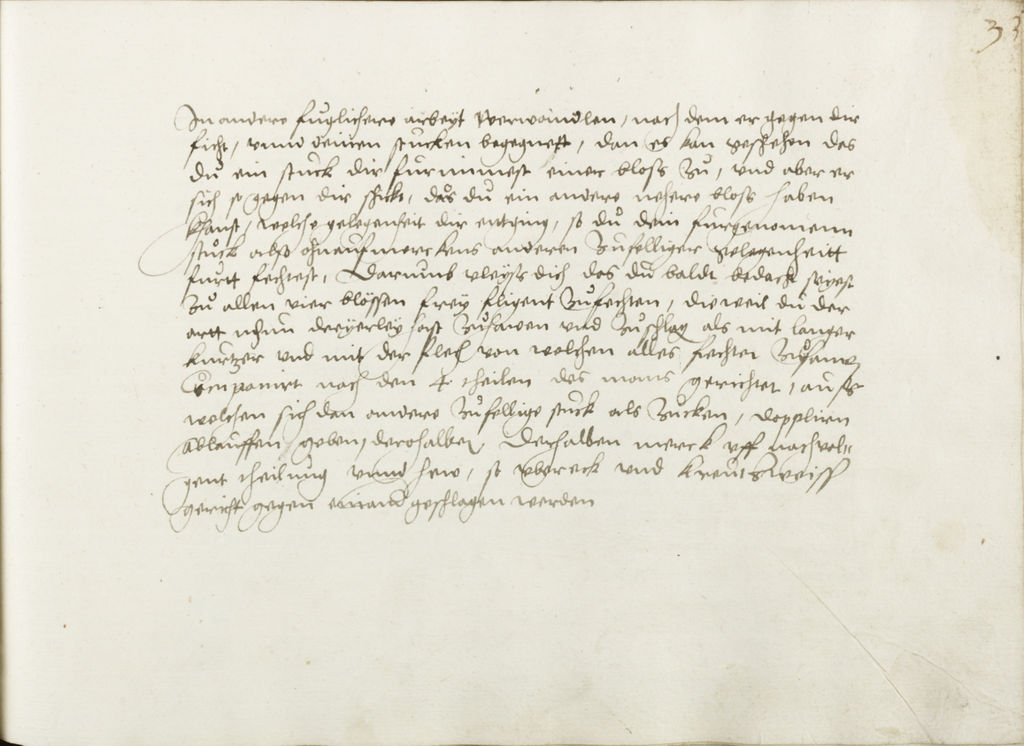 33
In andere fuglichere arbeyt Verwandlen, nach dem er gegen dir
ficht, vnnd deinen stucken begegnett, dan es kan geschehen das
du ein stuck dir furnimest einer bloss zu, vnd aber er
sich so gegen dir schickt, das du ein andere nehere bloss haben
khanst, welche gelegenheit dir entging, so du dein furgenomenn
stuck also ohn aufmerckens anderen zufelliger gelegenheitt
furtt fechtest, Darumb vleyss dich das du baldt bedacht seyest
zu allen vier blössen frey fligent zufechten, dieweil du der
artt nhun dreyerley hast zuhawen vnd zuschlag als mit langer
kurtzer vnd mit der flech von welchen alles fechten zusamen
Componirt nach den 4 theilen des mans gerichtet, auss
welchen sich dan andere zufellige stuck als zucken, dopplirn
ablauffen geben, derohalben, Derhalben merck vff nachvol=
gent theilung vnnd hew, so vbereck vnd kreutzweiss
gericht gegen einand geschlagen werden